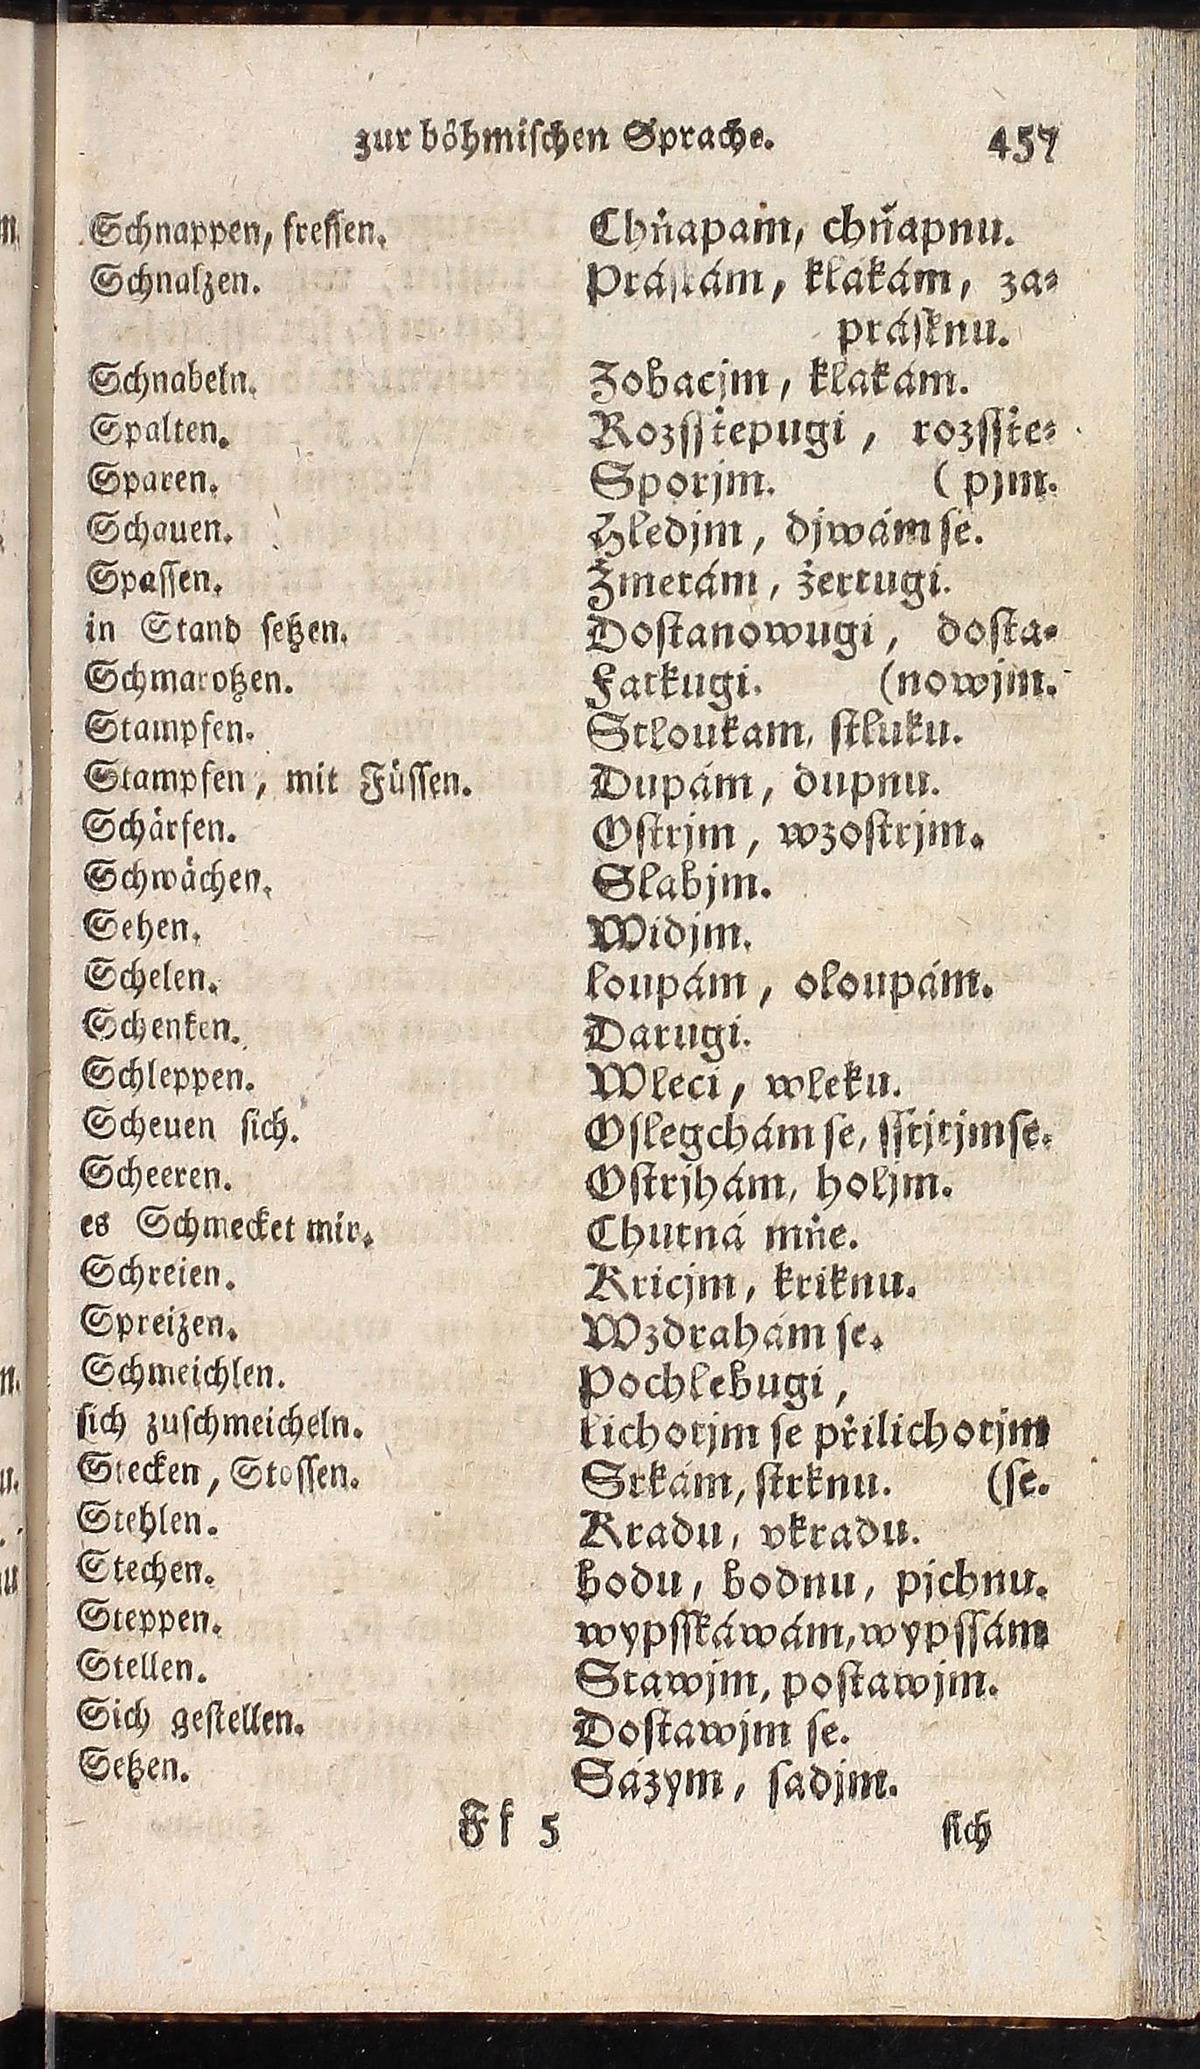 zur böhmischen Sprache. 457
Schnappen, fressen. Chňapám, chňapnu.
Schnalzen. Práskám, klákám, za⸗
prásknu.
Schnabeln. Zobacjm, klakám.
Spalten. Rozsstepugi, rozsste⸗
Sparen. Sporjm. (pjm.
Schauen. Hledjm, djwám se.
Spassen. Žmerám, žertugi.
in Stand setzen. Dostanowugi, dosta⸗
Schmarotzen. Fatkugi. (nowjm.
Stampfen. Stloukam, stluku.
Stampfen, mit Füssen. Dupám, dupnu.
Schärfen. Ostrjm, wzostrjm.
Schwächen. Slabjm.
Sehen. Widjm.
Schelen. loupám, oloupám.
Schenken. Darugi.
Schleppen. Wleci, wleku.
Scheuen sich. Oslegchám se, sstjtjmse.
Scheeren. Ostrjhám, holjm.
es Schmecket mir. Chutná mňe.
Schreien. Kricjm, kriknu.
Spreizen. Wzdrahám se.
Schmeichlen. Pochlebugi,
sich zuschmeicheln. lichotjm se přilichotjm
Stecken, Stossen. Srkám, strknu. (se.
Stehlen. Kradu, vkradu.
Stechen. bodu, bodnu, pjchnu.
Steppen. wypsskáwám, wypssám
Stellen. Stawjm, postawjm.
Sich gestellen. Dostawjm se.
Setzen. Sázym, sadjm.
Ff 5 sich